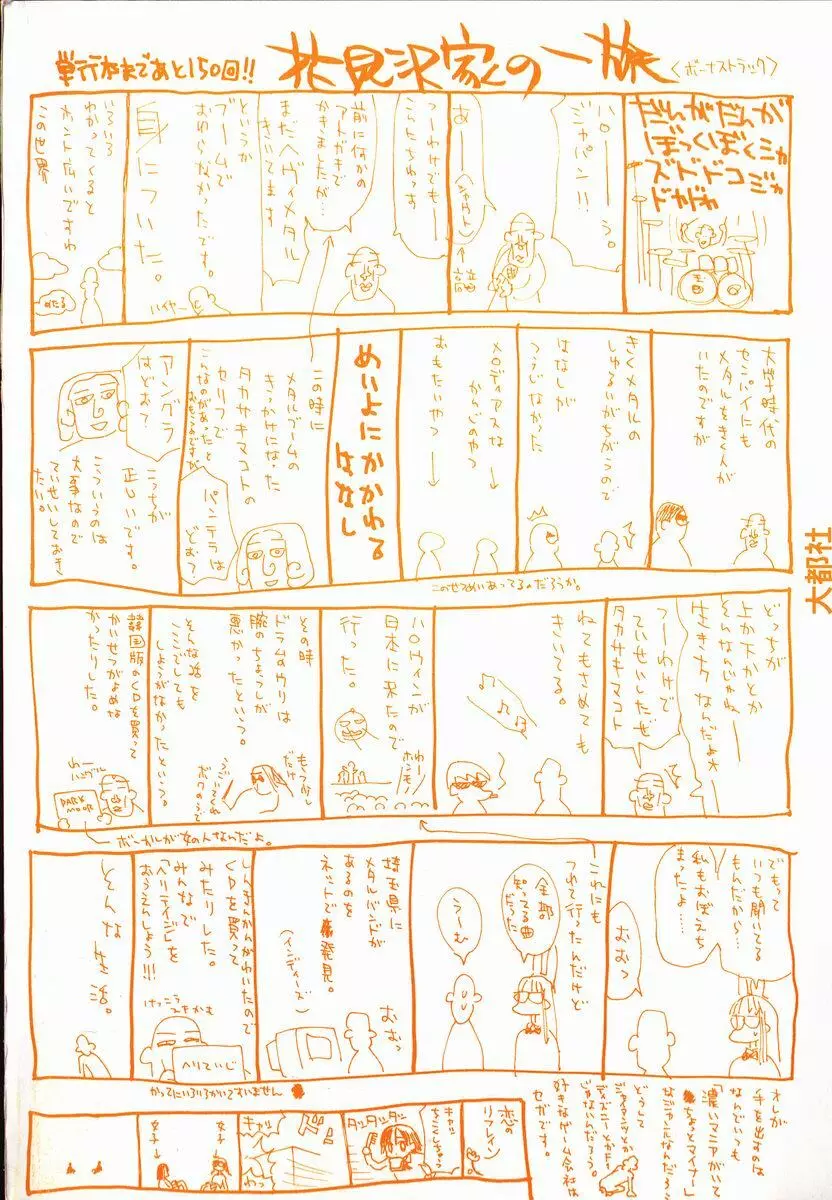 単行本まであと150回!!
花見沢家の一族
〈ボーナストラック〉
だんがだんが
ぼっくぼくジャ
ズドドコジャ
ドガドガ
ハローーう。
ジャパン!!
あーー
(シャウト)
つーわけでもー
こんにちわっす
前に何かの
アトガキで
かきましたが…
まだヘヴィメタル
きいてます
というか
ブームで
おわらなかったです。
身についた。
ハイヤー
いろいろ
わかってくると
ホント広いですね
この世界
めたる
大学時代の
センパイにも
メタルをきく人が
いたのですが
きくメタルの
しゅるいがちがうので
はなしが
つうじなかった
メロディアスな
かんじのやつ
おもたいやつ
このせつめいあってるんだろうか。
めいよにかかわる
はなし
この時に
メタルブームの
きっかけになった
タカサキマコトの
セリフで
こんなのがあったと
おもうのですが
パンテラは
どお?
アングラ
はどお?
こっちが
正しいです。
こういうのは
大事なので
ていせいしておき
たい。
どっちが
上か下かとか
そんなんじゃねー
生き方なんだよ
つーわけで
ていせいしたぜ
タカサキマコト
ねてもさめても
きいてる。
ハロウィンが
日本に来たので
行った。
わー
ホンモノ
その時
ドラムのウリは
腕のちょうしが
悪かったという。
もう少し
だけ
うごいてくれ
ボクのうで
そんな話を
ここでしても
しようがなかったという。
韓国版のCDを買って
かいせつがよめな
かったりした。
わー
ハングル
DARK
MOOR
ボーカルが女の人なんだよ。
でもって
いつも聞いてる
もんだから…
私もおぼえち
まったよ……
おおっ
これにも
つれて行ったんだけど
全部
知ってる曲
だった
うーむ
埼玉県に
メタルバンドが
あるのを
ネットで発見。
(インディーズ)
おおっ
しんきんかんがわいたので
CDを買って
みたりした。
みんなで
「ヘリテイジ」を
おうえんしよう!!!
けっこう
べりていじ
かってにいろいろかいてすいません
そんな
生活。
オレが
手を出すのは
なんでいつも
「濃いマニアがいて
ちょっとマイナー」
なジャンルなんだろう
どうして
ジャンプマンガとか
ディズニーとかた
じゃないんだろう。
好きなゲーム会社は
セガです。
恋の
リフレイン
キャッ
ちこくしちゃう
ダッダッダッ
ドン
キャッ
わっ
女子→
女子→
大都社